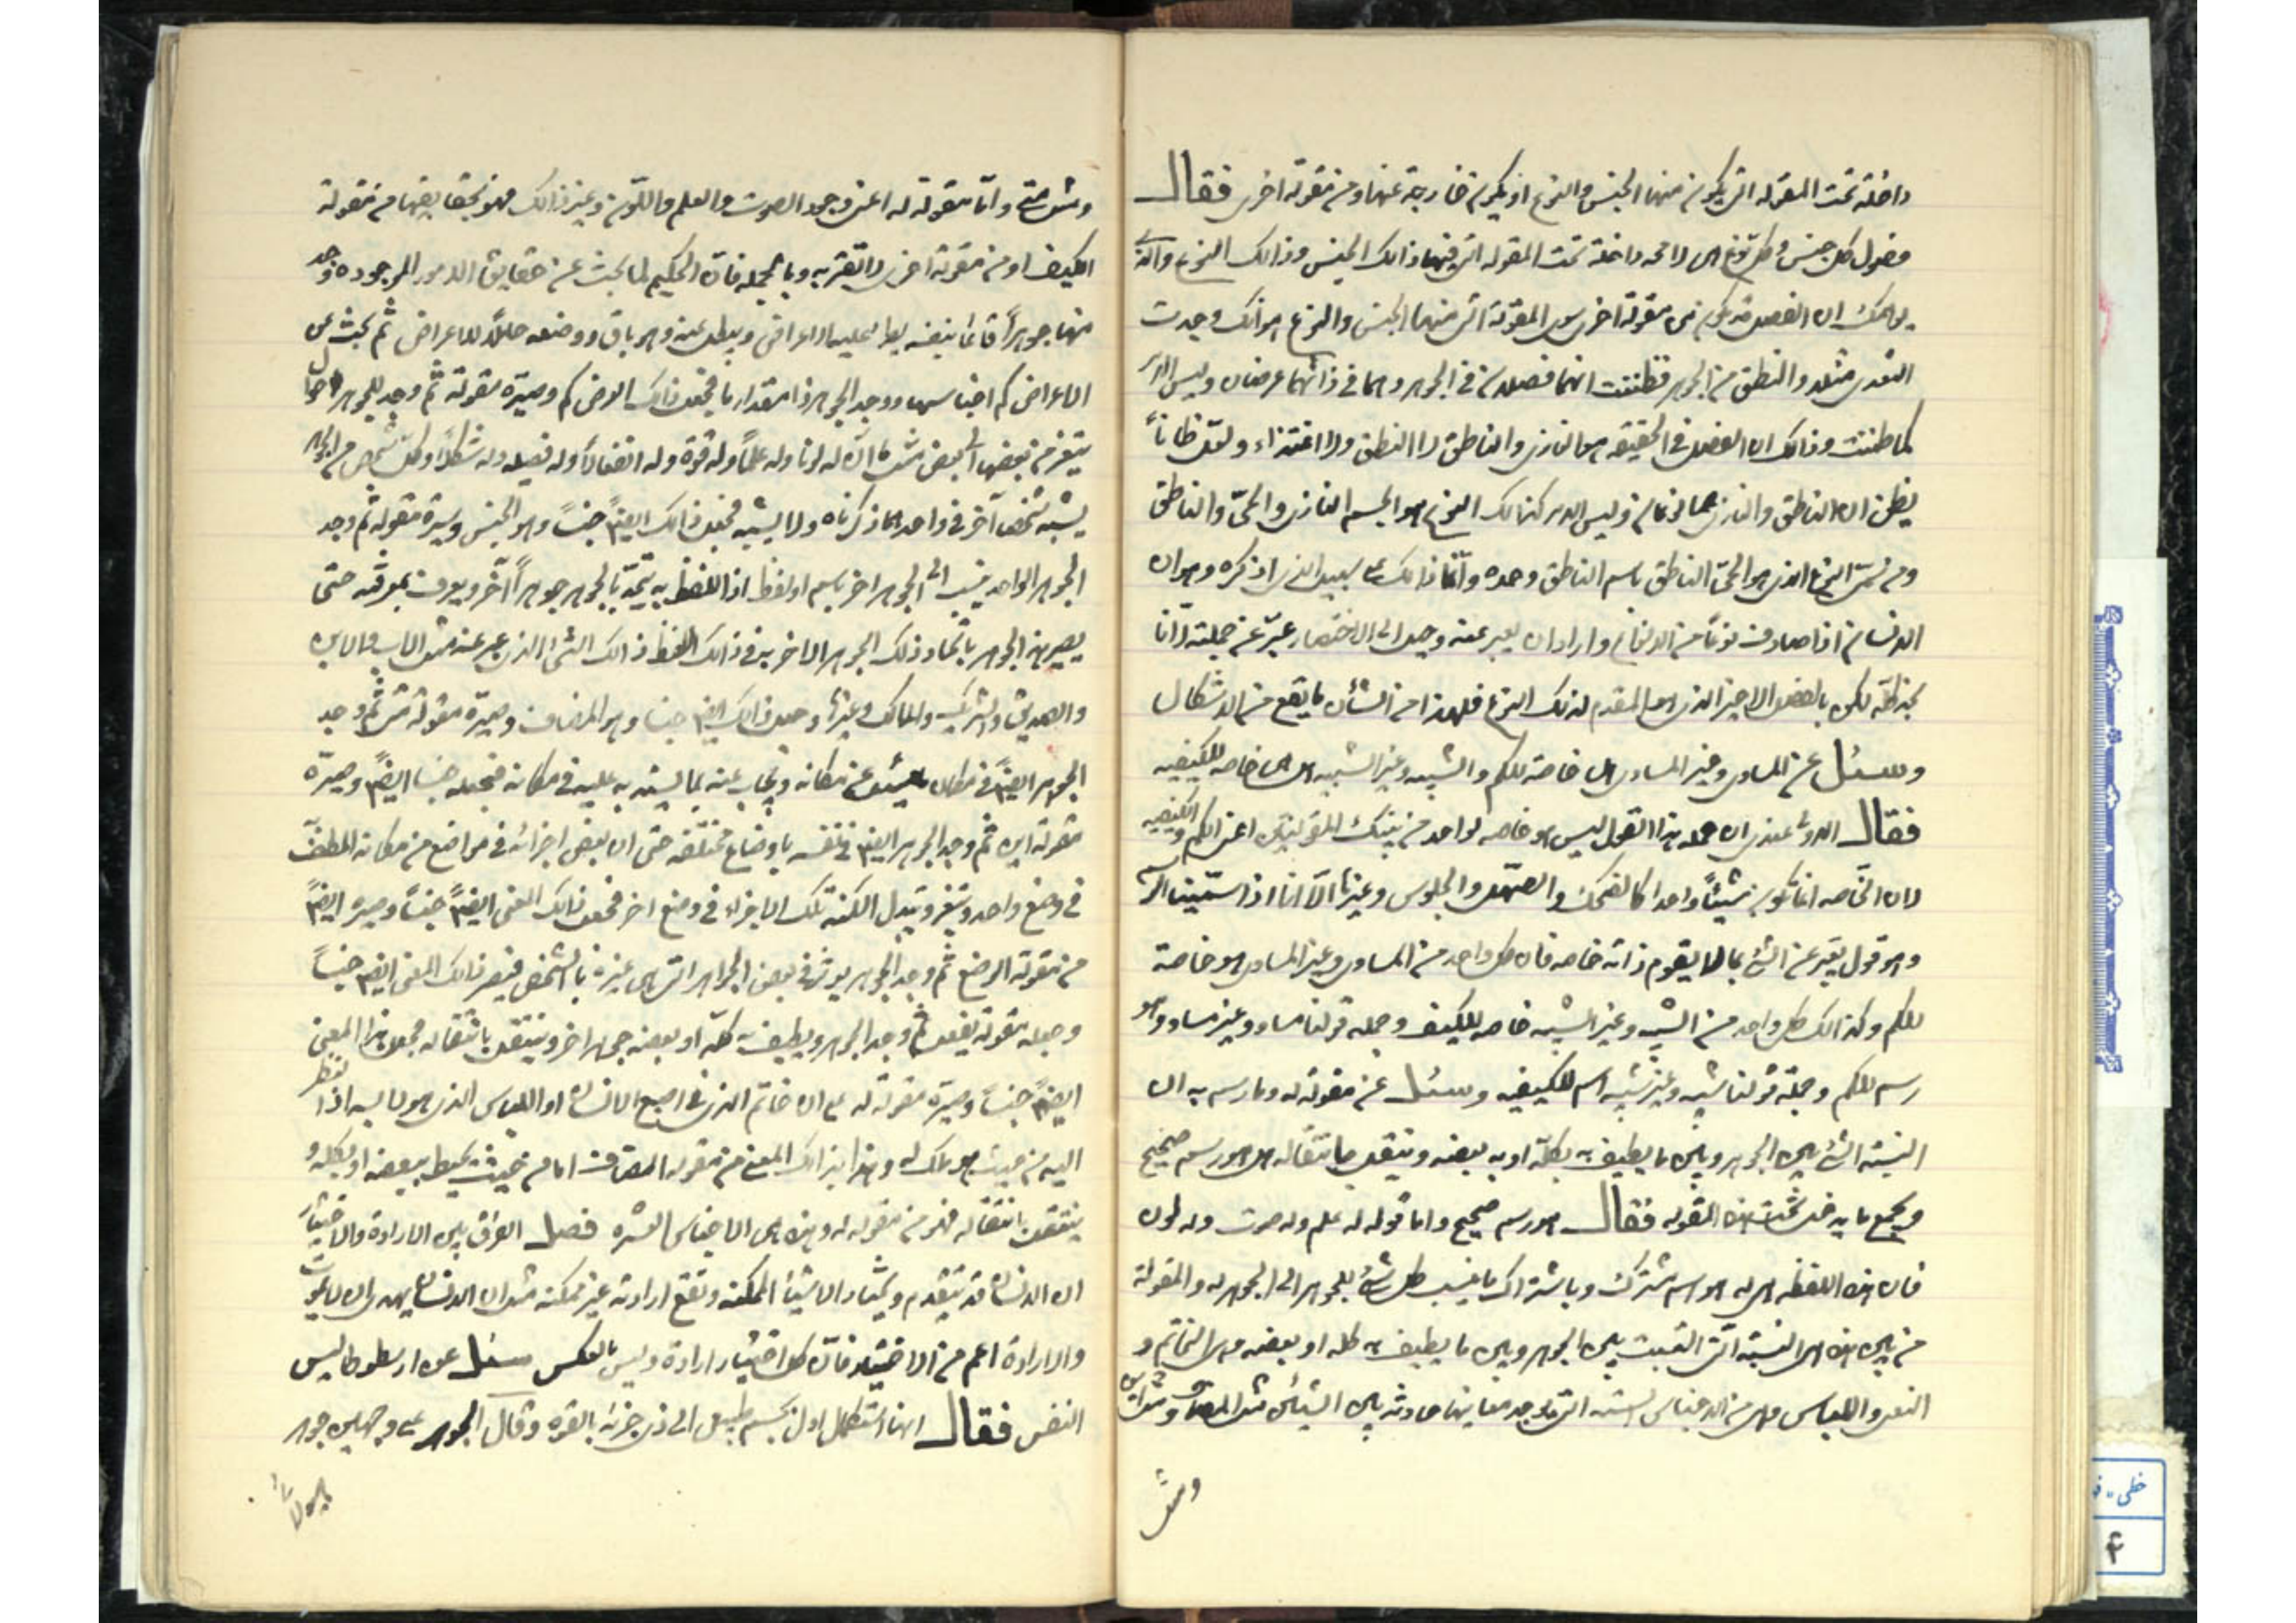 داخلة تحت المقوله التى يكون منها الجنس والنوع او يكون خارجة عنها ومن مقولة اخرى فقال
فصول كل جنس وكل نوع لا محه داخلة تحت المقوله التى فيها ذالك الجنس وذالك النوع والذى
يوهمك ان الفصل قد يكون من مقولة اخرى سوى المقولة التى منها الجنس والنوع هو انك وجدت
التغذى مثلا والنطق من الجوهر فظننت انهما فصلان فى الجوهر وهما فى ذاتهما عرضان وليس الامر
كما ظننت وذالك ان الفصل فى الحقيقه هو الغاذى والناطق لا النطق ولا اغتذاء ولعل ظاناً
يظن ان الناطق والغاذى هما نوعان وليس الامر كذالك النوع هو الجسم الغاذى والحىّ والناطق
ومن سمّى النوع الذى هو الحىّ الناطق باسم الناطق وحده وانّما ذالك على سبيل الذى اذكره وهو ان
الانسان اذا صادف نوعاً من الانواع واراد ان يعبر عنه وجهد الى الاختصار عبّر عن جملته لا انا
لكن بالفصل الاخير الذى هو المقدم لذلك النوع فلهذا من الشأن ما يقع من الاشكال
وسئل عن المساوى وغير المساوى هى خاصة للكم والشبيه وغير الشبيه هل هى خاصه للكيفيه
فقال الاولى عندى ان جمله هذا القول ليس هو خاصه لواحد من تينك المقولتين اعنى الكم والكيفيه
لان الخاصه انما تكون شيئاً واحدا كالضحك والصهيل والجلوس وغيرها الا انا اذا استثنينا الرسم
وهو قول يعبّر عن الشئ بما لا يقوم ذاته خاصه فان كل واحد من المساوى وغير المساوى هو خاصة
للكم وكذالك كل واحد من الشبيه وغير الشبيه خاصه للكيف وجمله قولنا مساو وغير مساو هو
رسم للكم وجملة قولنا شبيه وغير شبيه رسم للكيفيه وسئل عن مقولة له وما رسم به ان
النسبة الشئ بين الجوهر وبين ما يطيف به بكلّه او به ببعضه وينتقل بانتقاله هل هو رسم صحيح
ويجمع ما يدخل تحت هذه المقوله فقال هو رسم صحيح واما قوله له علم وله صوت وله لون
فان هذه اللفظه هى له هو اسم مشترك وباشتراك ما ينسب كل شئ للجوهر الى الجوهر له والمقولة
من بين هذه هى النسبة التى القيت بين الجوهر وبين ما يطيف به كله او بعضه وهى الخاتم و
النعل واللباس وهى من الاجناس الستة التى توجد معانيها حادثه بين الشيئين مثل المضاف ومثل اين
ومثل
ومثل متى وامّا مقولة له اعنى وجود الصوت والعلم واللون وغير ذالك فهو بحقايقها من مقولة
الكيف او من مقولة اخرى لا تعتريه وبالجمله فان الحكيم لما بحث عن حقايق الامور الموجوده وجد
منها جوهراً قائما بنفسه يطرأ عليه الاعراض ويبطل عنه وهو باق ووضعه حاملاً للاعراض ثم بحث عن
الاعراض كم اجناسها ووجد الجوهر ذا مقدار ما فجعل ذالك العرض كم وصيّره مقولة ثم وجد للجوهر احوالاً
يتغير من بعضها الى بعض مثل ان له لونا وله علماً وله قوة وله انفعالاً وله فضيله وله شكلاً وكل شخص من الجواهر
يشبه شخصا آخر فى واحد مما ذكرناه ولا يشبهه فجعل ذالك ايضاً جنساً وهو الجنس وسيره مقوله ثم وجد
الجوهر الواحد ينسب الى الجوهر اخر باسم او لفظ اذا اللفظ به يتحد بالجوهر جوهراً آخر ويعرف بمعرفته حتى
يصير هذا الجوهر باتحاد ذلك الجوهر الاخر به فى ذالك اللفظ ذالك الشئ الذى عبر عنه مثل الاب والابن
والصديق والشريك والمالك وغيرها وجعل ذالك ايضا جنسا وهو المضاف وصيّره مقولة ثم وجد
الجوهر ايضاً فى مكان يسئل عن مكانه ويجاب عنه بما يستدل به عليه فى مكانه فجعله جنسا ايضاً وصيرّه
مقولة اين ثم وجد الجوهر ايضا فى نفسه باوضاع مختلفه حتى ان بعض اجزائه فى مواضع من مكانه المطيف
فى وضع واحد ويتغير ويتبدل امكنة تلك الاجزاء فى وضع اخر فجعل ذالك المعنى ايضاً جنساً وصيره ايضاً
من مقولة الوضع ثم وجد الجوهر يؤثر فى بعض الجواهر التى هى غيره بالشخص فيصير ذالك المعنى ايضا جنساً
وجعله مقولة يفعل ثم وجد الجوهر ويطيف به كلّه او بعضه جوهر اخر وينتقل بانتقاله فجعل هذا المعنى
ايضاً جنساً وصيّره مقولة له على ان خاتم الذى فى اصبع الانسان او اللباس الذى هو لابسه اذا نظر
اليه من حيث هو ملك له وهذا بذالك المعنى من مقوله المضاف اما من حيث يحيط ببعضه او بكله و
ينتقل بانتقاله فهو من مقوله له وهذه هى الاجناس العشره فصل الفرق بين الارادة والاختيار
ان الانسان قد يتقدم ويختار الاشياء الممكنه وتقع ارادته غير ممكنه مثل ان الانسان يهوى ان لا يموت
والارادة اعم من الاختيار فان كل اختيار ارادة وليس بالعكس سئل عن ارسطوطاليس
النفس فقال انها استكمال اول لجسم طبيعى الى ذى حيوة بالقوه وقال الجوهر على وجهين جوهر